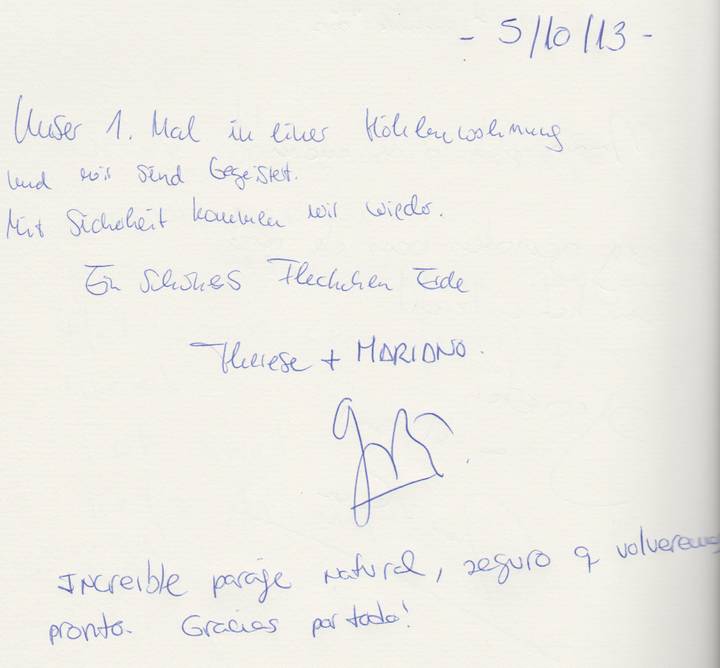 - 5/10/13 -
Unser 1. Mal in einer Höhlenwohnung
und wir sind begeistert.
Mit Sicherheit kommen wir wieder.
Ein schönes Fleckchen Erde
Therese + MARIANO.
INCREIBLE paraje natural, seguro q volveremos
pronto. Gracias por todo!